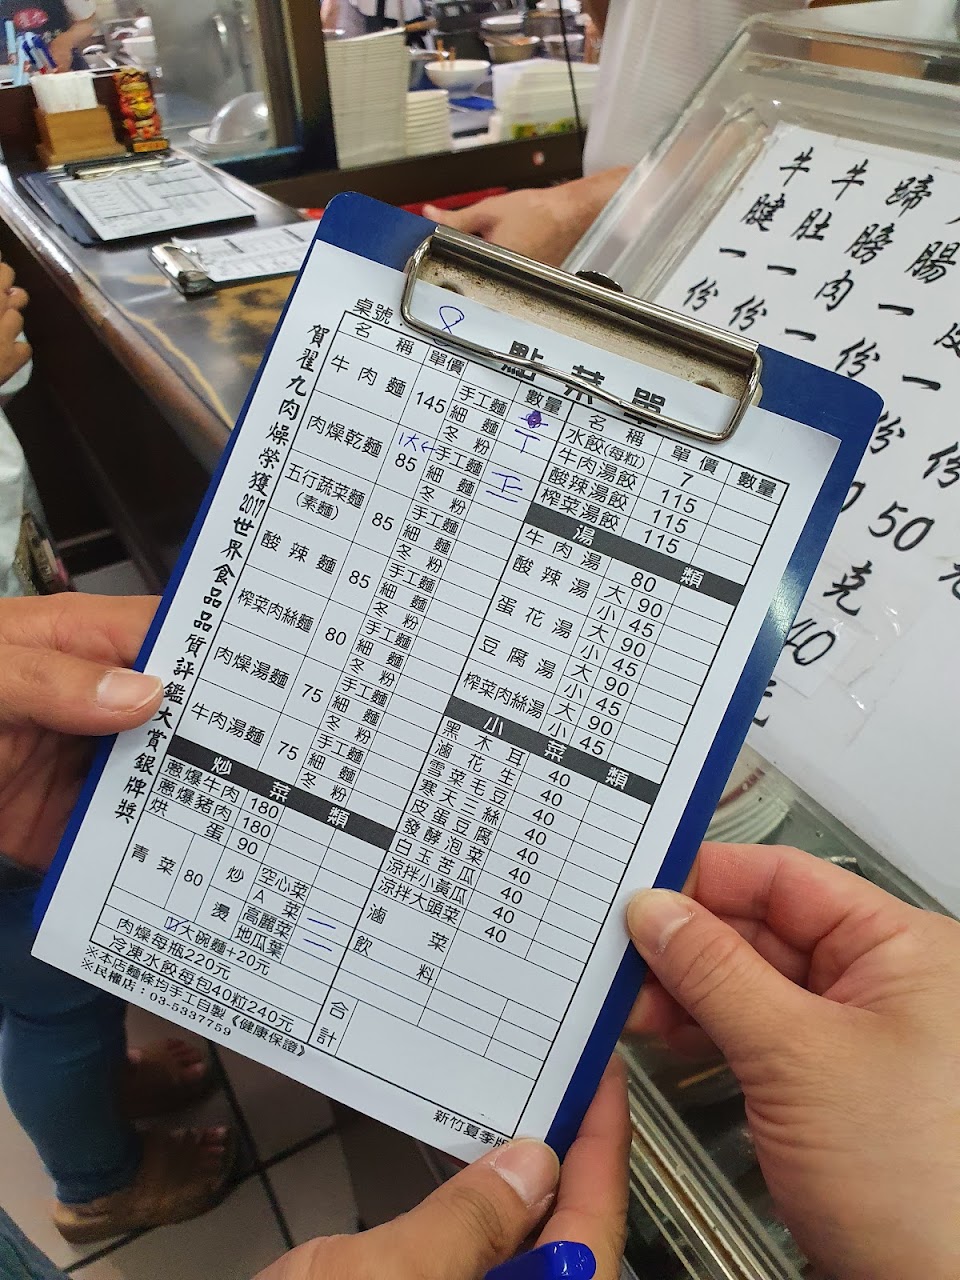 桌號：8
點菜單
賀翟九肉燥榮獲2017世界食品品質評鑑大賞銀牌獎
名稱 單價 數量
牛肉麵 145 手工麵 丅
細麵
冬粉
肉燥乾麵 85 手工麵 正
細麵
冬粉
五行蔬菜麵(素麵) 85 手工麵
細麵
冬粉
酸辣麵 85 手工麵
細麵
冬粉
榨菜肉絲麵 80 手工麵
細麵
冬粉
肉燥湯麵 75 手工麵
細麵
冬粉
牛肉湯麵 75 手工麵
細麵
冬粉
炒菜類
蔥爆牛肉 180
蔥爆豬肉 180
烘蛋 90
青菜 80 炒 燙
空心菜
A菜
高麗菜
地瓜葉
大碗麵+20元
肉燥每瓶220元
冷凍水餃每包40粒240元
※本店麵條均手工自製《健康保證》
※民權店：03-5337759
名稱 單價 數量
水餃(每粒) 7
牛肉湯餃 115
酸辣湯餃 115
榨菜湯餃 115
湯類
牛肉湯 80
酸辣湯 大 90
小 45
蛋花湯 大 90
小 45
豆腐湯 大 90
小 45
榨菜肉絲湯 大 90
小 45
小菜類
黑木耳 40
滷花生 40
雪菜毛豆 40
寒天三絲 40
皮蛋豆腐 40
發酵泡菜 40
白玉苦瓜 40
涼拌小黃瓜 40
涼拌大頭菜 40
滷菜
飲料
合計
新竹夏季版
牛腱一份
牛肚一份
蹄膀肉一份
腸一份
50
克
40